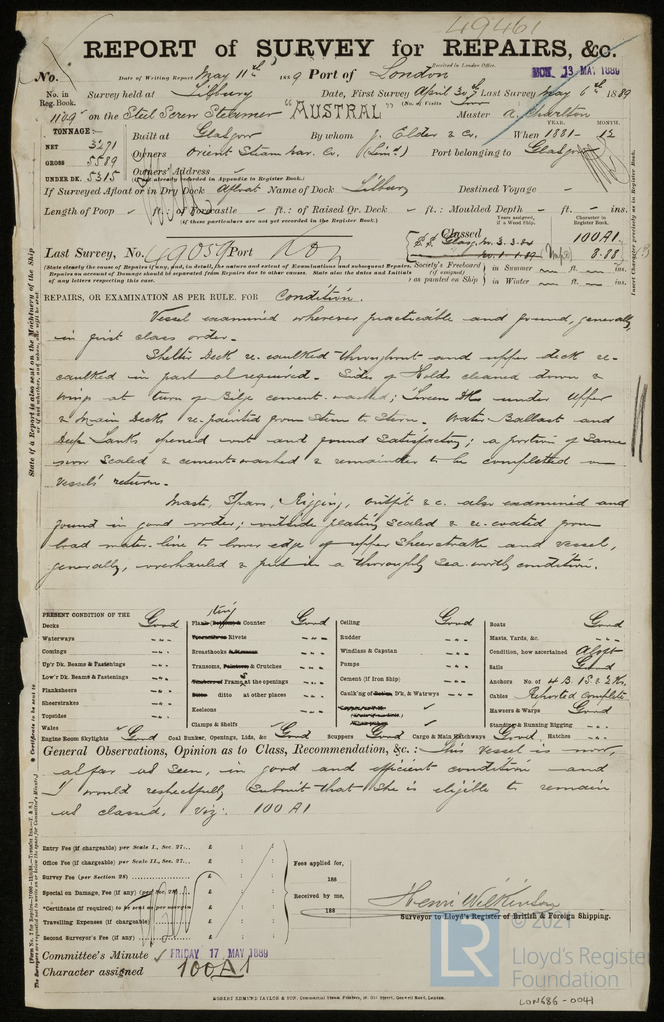 49461
REPORT of SURVEY for REPAIRS, &c.
Received in London Office.
No. Date of Writing Report May 11th 1889 Port of London MON. 13 MAY 1889
No. in Reg. Book. Survey held at Tilbury Date, First Survey April 30th Last Survey May 6th 1889
(No. of Visits
1109 on the Steel Screw Steamer "AUSTRAL" Master A. Charlton
TONNAGE:-
YEAR. MONTH.
NET 3271 Built at Glasgow By whom J. Elder & Co. When 1881 - 12
GROSS 5589 Owners Orient Steam Nav. Co. (Limd.) Port belonging to Glasgow
UNDER DK. 5315 Owners' Address
(If not already recorded in Appendix to Register Book.)
If Surveyed Afloat or in Dry Dock Afloat Name of Dock Tilbury Destined Voyage -
Length of Poop - ft. of Forecastle - ft.: of Raised Qr. Deck - ft.: Moulded Depth - ft. - ins.
(If these particulars are not yet recorded in the Register Book.)
Years assigned, if a Wood Ship.
Character in Register Book.
Last Survey, No. 49059 Port Lon
Classed 100A1
8.88
(State clearly the cause of Repairs if any, and, in detail, the nature and extent of Examinations and subsequent Repairs. Repairs on account of Damage should be separated from Repairs due to other causes. State also the dates and Initials of any letters respecting this case.
Society's Freeboard (if assigned) as painted on Ship in Summer ft. ins.
in Winter ft. ins.
REPAIRS, OR EXAMINATION AS PER RULE. FOR Condition.
Vessel examined wherever practicable and found, generally,
in first class order.
Shelter Deck re-caulked throughout and upper deck re-
caulked in part as required. Sides of Holds cleaned down &
wings at turn of Bilge cement-washed; 'Tween Dks under Upper
& Main Decks re-painted from Stem to Stern. Water Ballast and
Deep Tanks opened out and found satisfactory; a portion of same
now scaled & cement-washed & remainder to be completed on
Vessels' return.
Masts, Spars, Rigging, outfit &c. also examined and
found in good order; outside plating scaled & re-coated from
load water-line to lower edge of upper sheerstrake and vessel,
generally, overhauled & put in a thoroughly sea-worthy condition.
PRESENT CONDITION OF THE
Decks Good
Waterways
Comings
Up'r Dk. Beams & Fastenings
Low'r Dk. Beams & Fastenings
Planksheers
Sheerstrakes
Topsides
Wales
Counter Good
Rivets
Breasthooks
Transoms, & Crutches
Frames at the openings
ditto at other places
Keelsons
Clamps & Shelfs
Ceiling Good
Rudder
Windlass & Capstan
Pumps
Cement (if Iron Ship)
Caulk'ng of D'k, & Watrwys
Boats Good
Masts, Yards, &c.
Condition, how ascertained Aloft
Sails Good
Anchors No. of 4 B. 1 S. & 2 Ks.
Cables Reported Complete
Hawsers & Warps Good
Standing & Running Rigging
Engine Room Skylights Good Coal Bunker, Openings, Lids, &c Good Scuppers Good Cargo & Main Hatchways Good Hatches
General Observations, Opinion as to Class, Recommendation, &c.: This vessel is now,
as far as seen, in good and efficient condition and
I would respectfully submit that she is eligible to remain
as classed, viz: 100 A1
Entry Fee (if chargeable) per Scale I., Sec. 27... £
Office Fee (if chargeable) per Scale II., Sec. 27... £
Survey Fee (per Section 28) £
Special on Damage, Fee (if any) (per Sec. 28) £
*Certificate (if required) to be sent as per margin
Travelling Expenses (if chargeable) £
Second Surveyor's Fee (if any) £
Fees applied for,
188
Received by me,
188
Henri Wilkinson
Surveyor to Lloyd's Register of British & Foreign Shipping.
Committee's Minute FRIDAY 17 MAY 1889
Character assigned 100A1
State if a Report is also sent on the Machinery of the Ship
* Certificate to be sent to
ROBERT EDMUND TAYLOR & SON, Commercial Steam Printers, 19, Old Street, Goswell Road, London.
© 2021
LR
Lloyd's Register
Foundation
LON686-0041